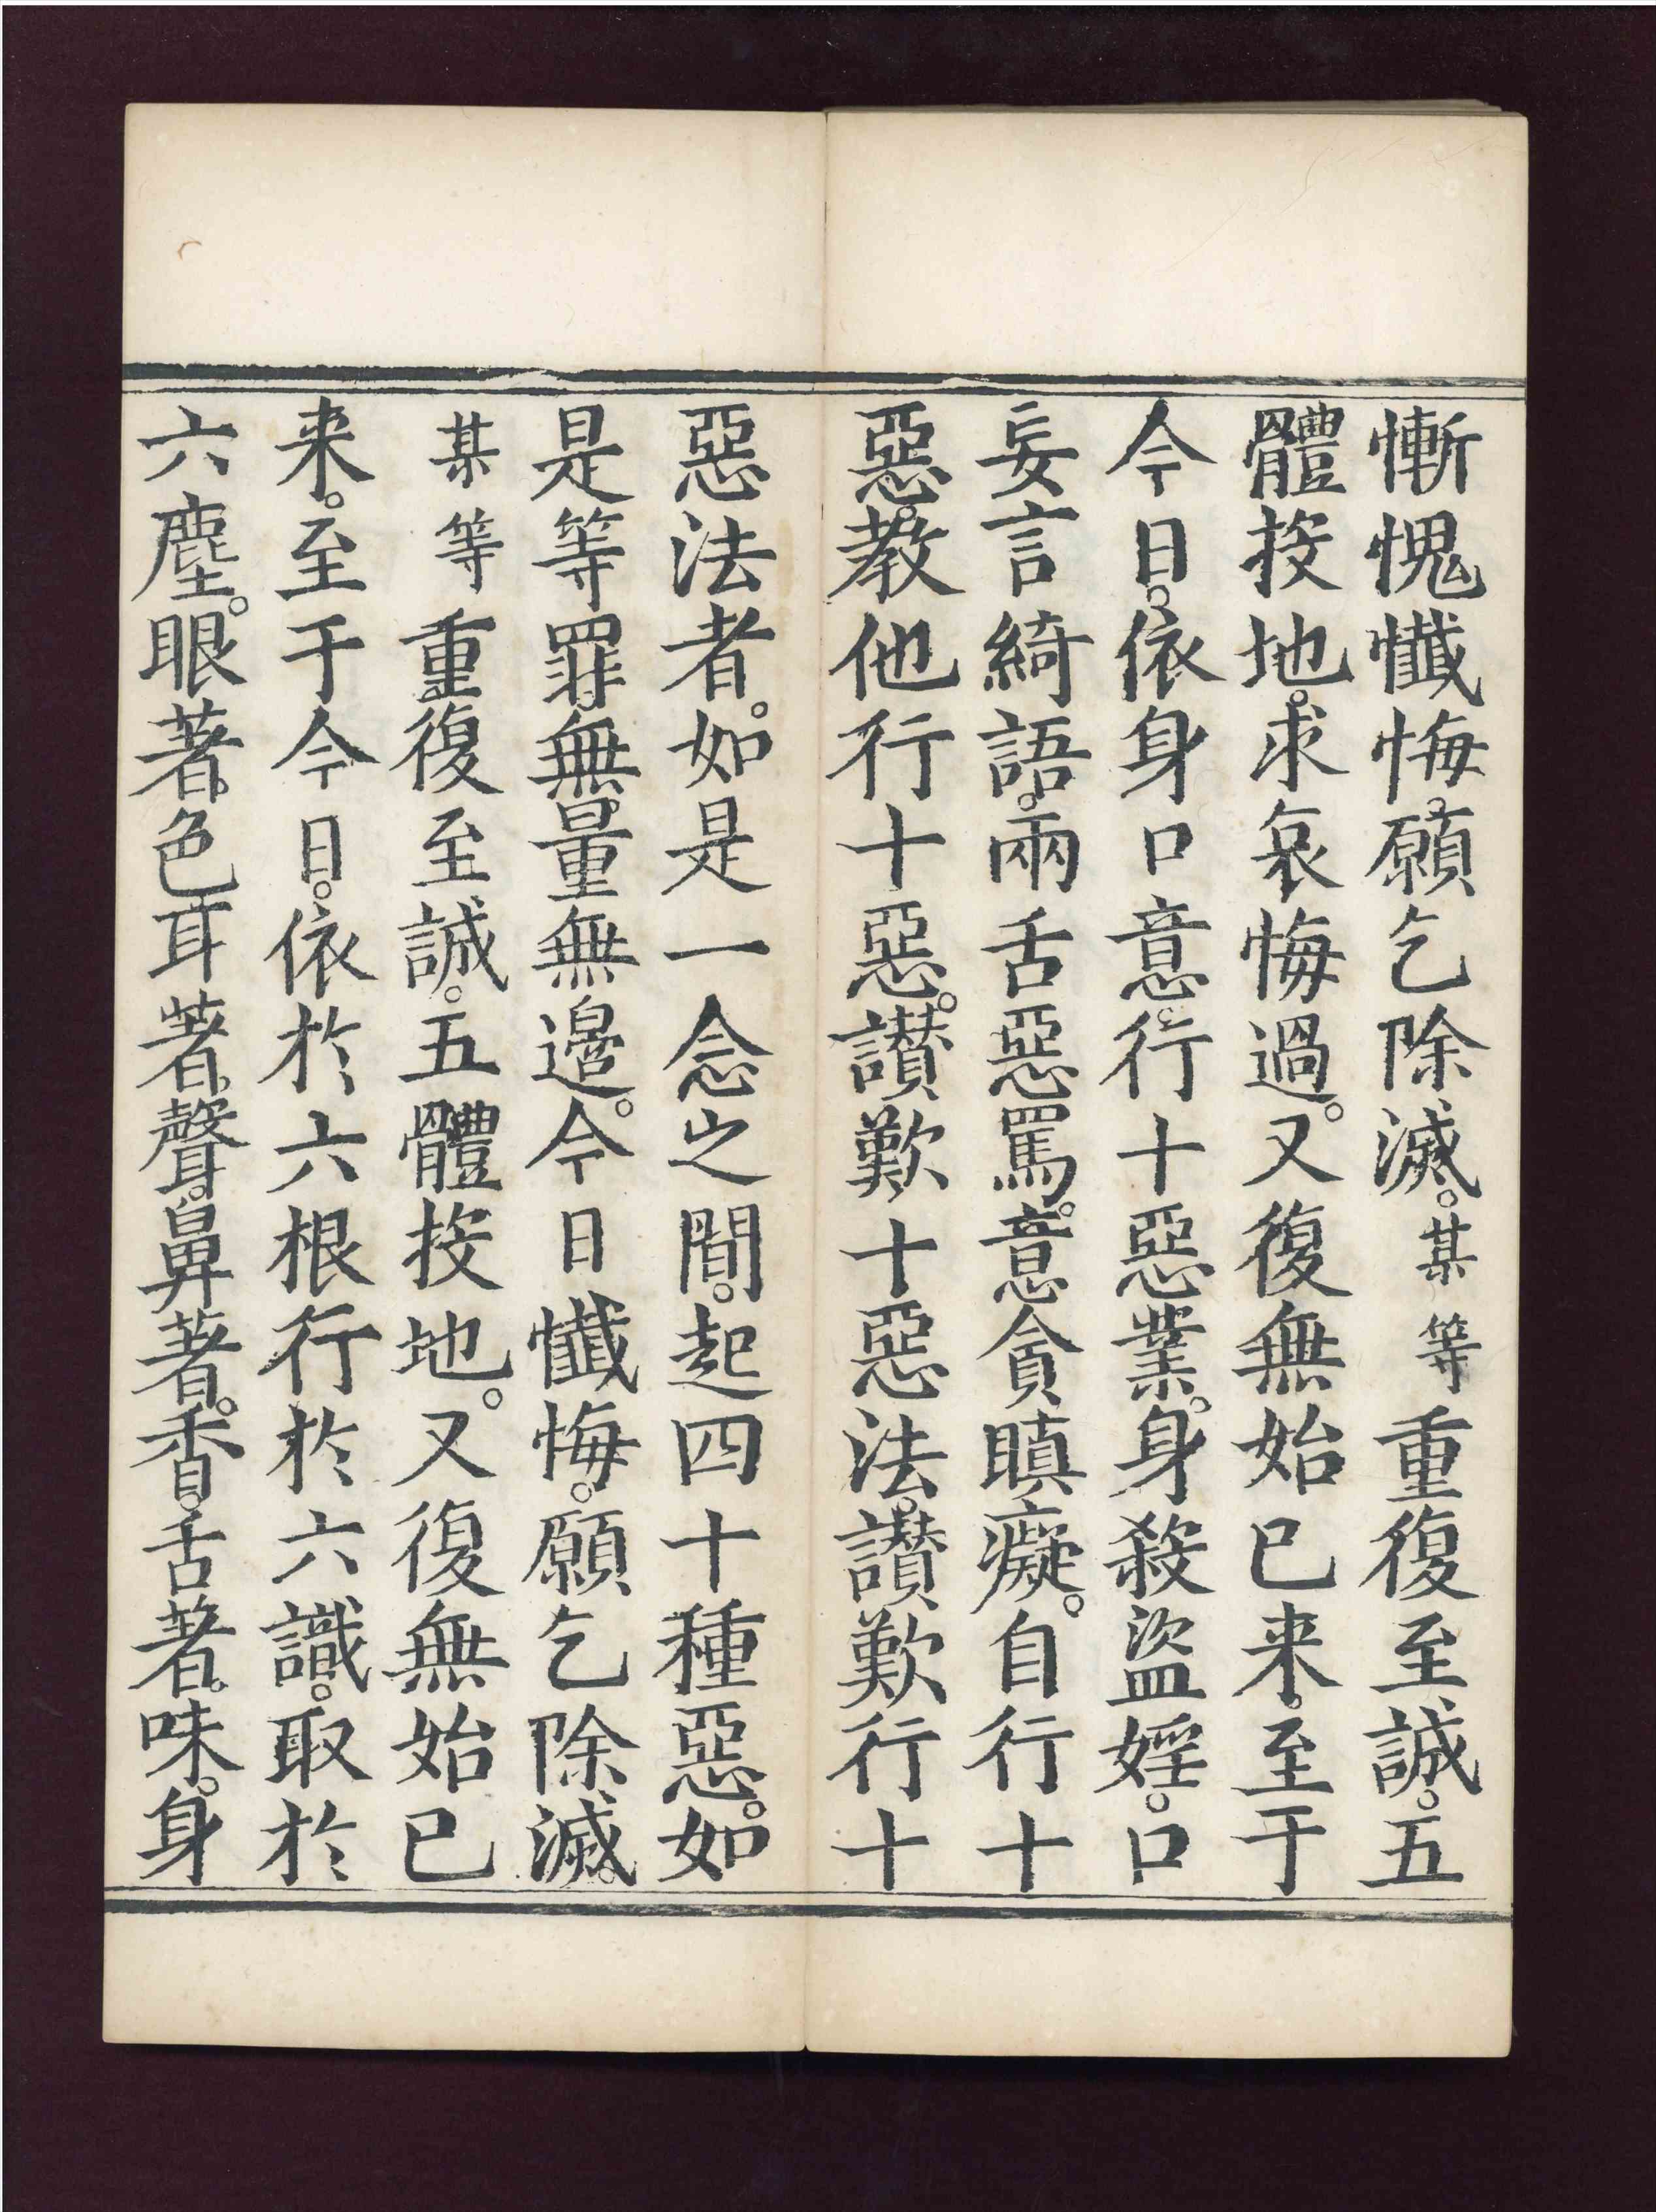 慚愧懺悔。願乞除滅。某等重復至誠。五
體投地。求哀悔過。又復無始已来。至于
今日。依身口意。行十惡業。身殺盜婬。口
妄言綺語。兩舌惡罵。意貪瞋癡。自行十
惡。教他行十惡。讃歎十惡法。讃歎行十
惡法者。如是一念之間。起四十種惡。如
是等罪。無量無邊。今日懺悔。願乞除滅。
某等重復至誠。五體投地。又復無始已
来。至于今日。依於六根行於六識。取於
六塵。眼著。色耳著。聲。鼻著。香。舌著。味。身